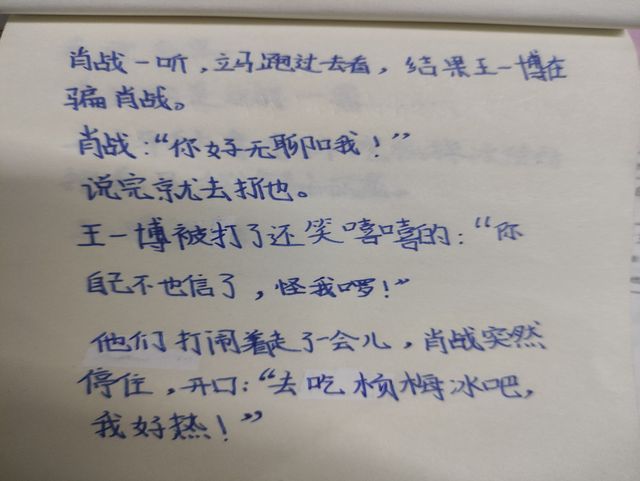 肖战一听，立马跑过去看，结果王一博在
骗肖战。
肖战：“你好无聊阿我！”
说完就去打他。
王一博被打了还笑嘻嘻的：“你
自己不也信了，怪我啰！”
他们打闹着走了一会儿，肖战突然
停住，开口：“去吃杨梅冰吧，
我好热！”